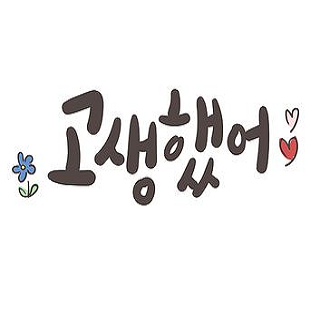 고생했어